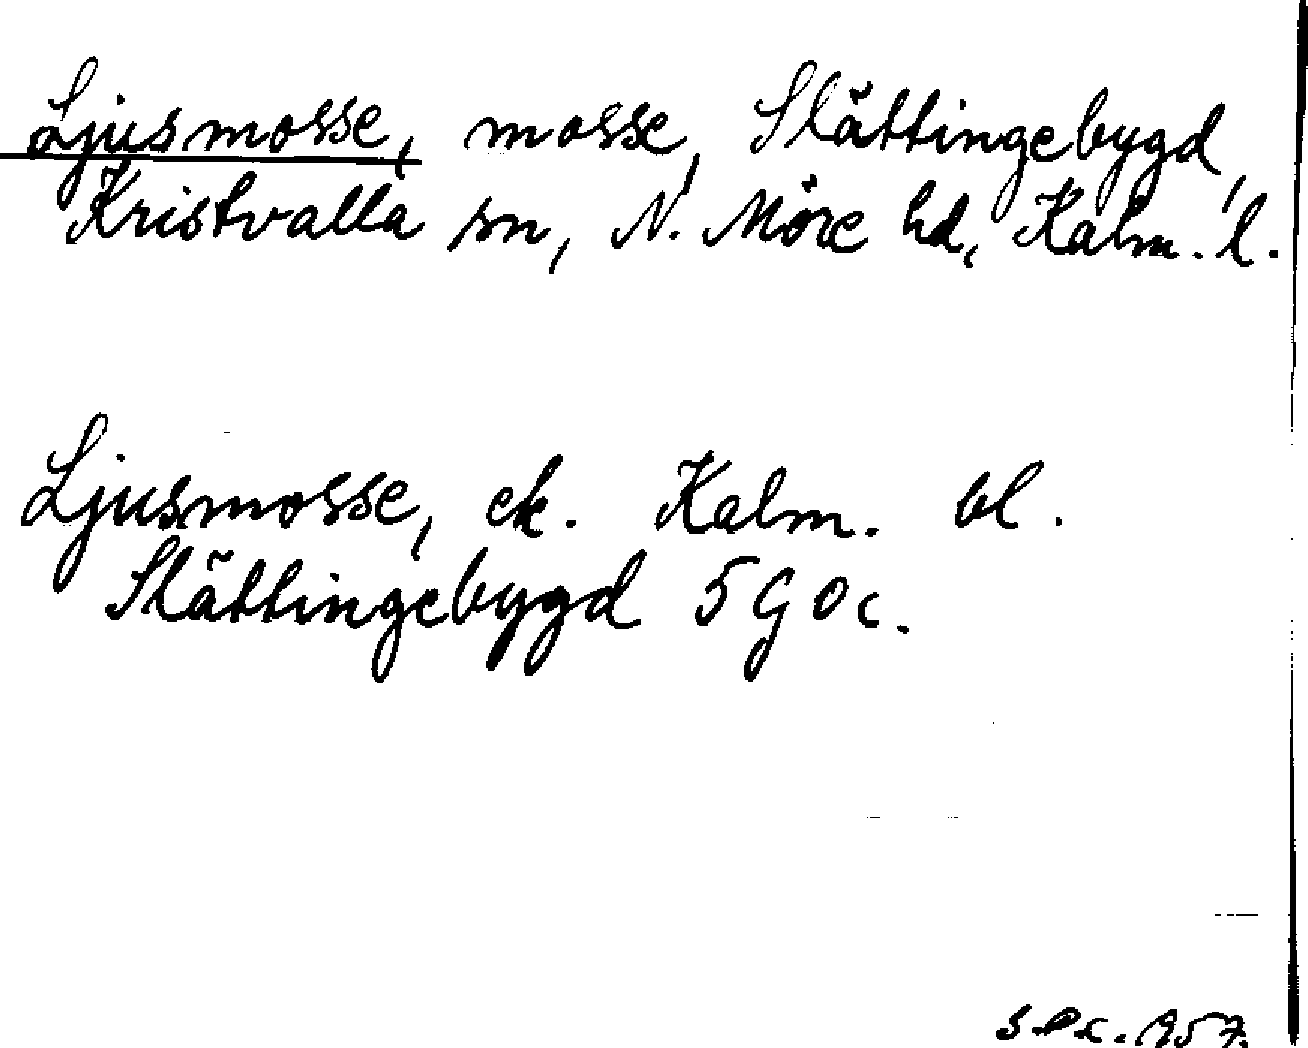 Ljusmosse, mosse, Slättingebygd,
Kristvalla sn, N. Möre hd, Kalm. l.
Ljusmosse, ek. Kalm. bl.
Slättingebygd 5 G o c.